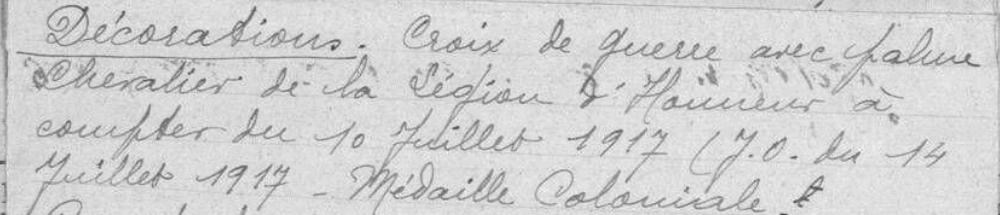 Décorations. Croix de guerre avec palme
Chevalier de la Légion d'Honneur à
compter du 10 Juillet 1917 (J.O. du 14
Juillet 1917 - Médaille Coloniale.